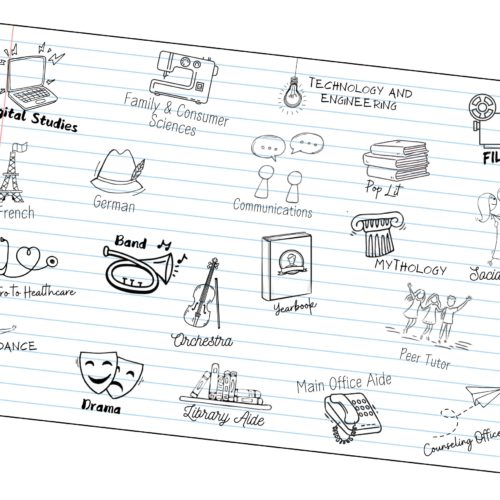 gital Studies
Family & Consumer
Sciences
TECHNOLOGY AND
ENGINEERING
FIL
French
German
Communications
Pop Lit
Social
ro to Healthcare
Band
Orchestra
Yearbook
MYTHOLOGY
Peer Tutor
DANCE
Drama
Library Aide
Main Office Aide
Counseling Office